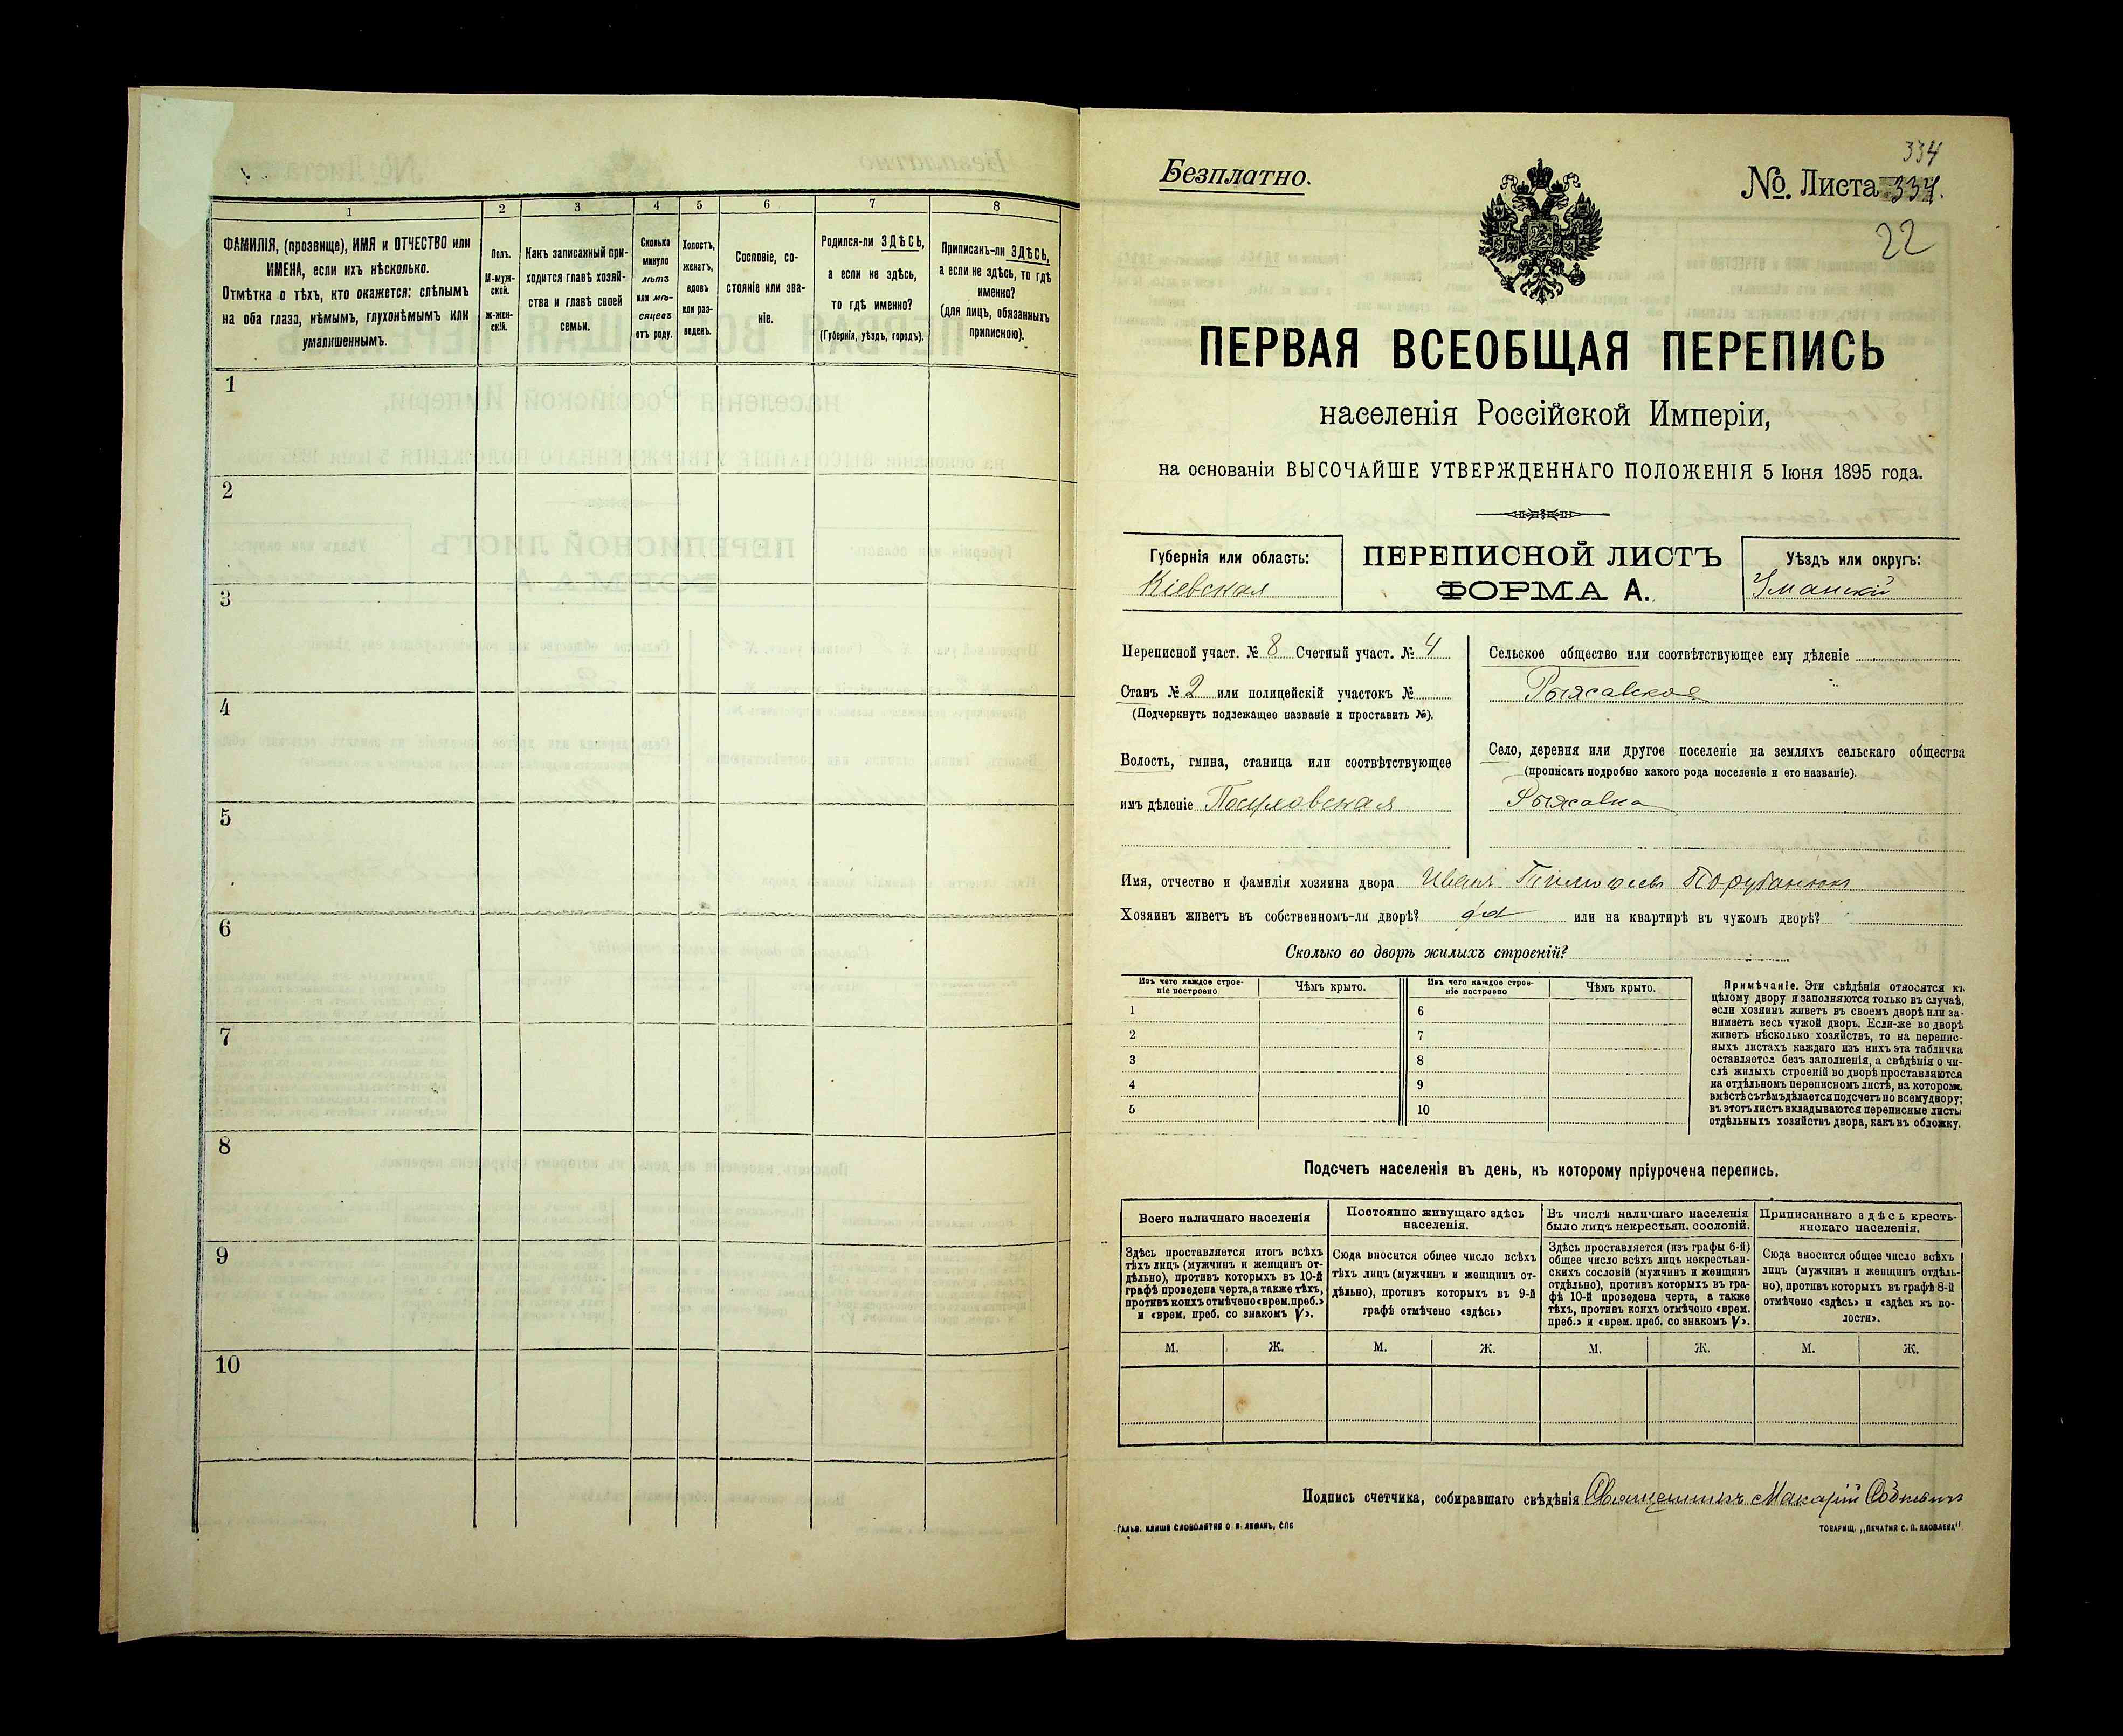 1 2 3 4 5 6 7 8
ФАМИЛІЯ, (прозвище), ИМЯ и ОТЧЕСТВО или
ИМЕНА, если ихъ нѣсколько.
Отмѣтка о тѣхъ, кто окажется: слѣпымъ
на оба глаза, нѣмымъ, глухонѣмымъ или
умалишеннымъ.
Полъ.
М-муж-
ской.
Ж-жен-
скій.
Какъ записанный при-
ходится главѣ хозяй-
ства и главѣ своей
семьи.
Сколько
минуло
лѣтъ
или мѣ-
сяцевъ
отъ роду.
Холостъ,
женатъ,
вдовъ
или раз-
веденъ.
Сословіе, со-
стояніе или зва-
ніе.
Родился-ли ЗДѢСЬ,
а если не здѣсь,
то гдѣ именно?
(Губернія, уѣздъ, городъ).
Приписанъ-ли ЗДѢСЬ,
а если не здѣсь, то гдѣ
именно?
(для лицъ, обязанныхъ
припискою).
1
2
3
4
5
6
7
8
9
10
334
Безплатно.
№ Листа 334.
22
ПЕРВАЯ ВСЕОБЩАЯ ПЕРЕПИСЬ
населенія Россійской Имперіи,
на основаніи ВЫСОЧАЙШЕ УТВЕРЖДЕННАГО ПОЛОЖЕНІЯ 5 Іюня 1895 года.
Губернія или область:
Кіевская
ПЕРЕПИСНОЙ ЛИСТЪ
ФОРМА А.
Уѣздъ или округъ:
Уманскій
Переписной участ. № 8 Счетный участ. № 4
Станъ № 2 или полицейскій участокъ №
(Подчеркнуть подлежащее названіе и проставить №).
Волость, гмина, станица или соотвѣтствующее
имъ дѣленіе
Сельское общество или соотвѣтствующее ему дѣленіе
Рыжавское
Село, деревня или другое поселеніе на земляхъ сельскаго общества
(прописать подробно какого рода поселеніе и его названіе).
Рыжавка
Имя, отчество и фамилія хозяина двора Иванъ Тимофеевъ Порубанюкъ
Хозяинъ живетъ въ собственномъ-ли дворѣ? да или на квартирѣ въ чужомъ дворѣ?
Сколько во дворѣ жилыхъ строеній?
Изъ чего каждое строе-
ніе построено
Чѣмъ крыто.
Изъ чего каждое строе-
ніе построено
Чѣмъ крыто.
1 6
2 7
3 8
4 9
5 10
Примѣчаніе. Эти свѣдѣнія относятся къ
цѣлому двору и заполняются только въ случаѣ,
если хозяинъ живетъ въ своемъ дворѣ или за-
нимаетъ весь чужой дворъ. Если-же во дворѣ
живетъ нѣсколько хозяйствъ, то на перепис-
ныхъ листахъ каждаго изъ нихъ эта табличка
оставляется безъ заполненія, а свѣдѣнія о чи-
слѣ жилыхъ строеній во дворѣ проставляются
на отдѣльномъ переписномъ листѣ, на которомъ
вмѣстѣ съ тѣмъ дѣлается подсчетъ по всему двору;
въ этотъ листъ вкладываются переписные листы
отдѣльныхъ хозяйствъ двора, какъ въ обложку.
Подсчетъ населенія въ день, къ которому пріурочена перепись.
Всего наличнаго населенія
Здѣсь проставляется итогъ всѣхъ
тѣхъ лицъ (мужчинъ и женщинъ от-
дѣльно), противъ которыхъ въ 10-й
графѣ проведена черта, а также тѣхъ,
противъ коихъ отмѣчено «врем. преб.»
и «врем. преб. со знакомъ V».
Постоянно живущаго здѣсь
населенія.
Сюда вносится общее число всѣхъ
тѣхъ лицъ (мужчинъ и женщинъ от-
дѣльно), противъ которыхъ въ 9-й
графѣ отмѣчено «здѣсь»
Въ числѣ наличнаго населенія
было лицъ некрестьян. сословій.
Здѣсь проставляется (изъ графы 6-й)
общее число всѣхъ лицъ некрестьян-
скихъ сословій (мужчинъ и женщинъ
отдѣльно), противъ которыхъ въ гра-
фѣ 10-й проведена черта, а также
тѣхъ, противъ коихъ отмѣчено «врем.
преб.» и «врем. преб. со знакомъ V».
Приписаннаго здѣсь кресть-
янскаго населенія.
Сюда вносится общее число всѣхъ
лицъ (мужчинъ и женщинъ отдѣль-
но), противъ которыхъ въ графѣ 8-й
отмѣчено «здѣсь» и «здѣсь къ во-
лости».
М. Ж. М. Ж. М. Ж. М. Ж.
Подпись счетчика, собиравшаго свѣдѣнія Священникъ Макарій
ГАЛЬВ. КЛИШЕ СЛОВОЛИТНЯ О. И. ЛЕМАНЪ, СПБ
ТОВАРИЩ. „ПЕЧАТНЯ С. П. ЯКОВЛЕВА"